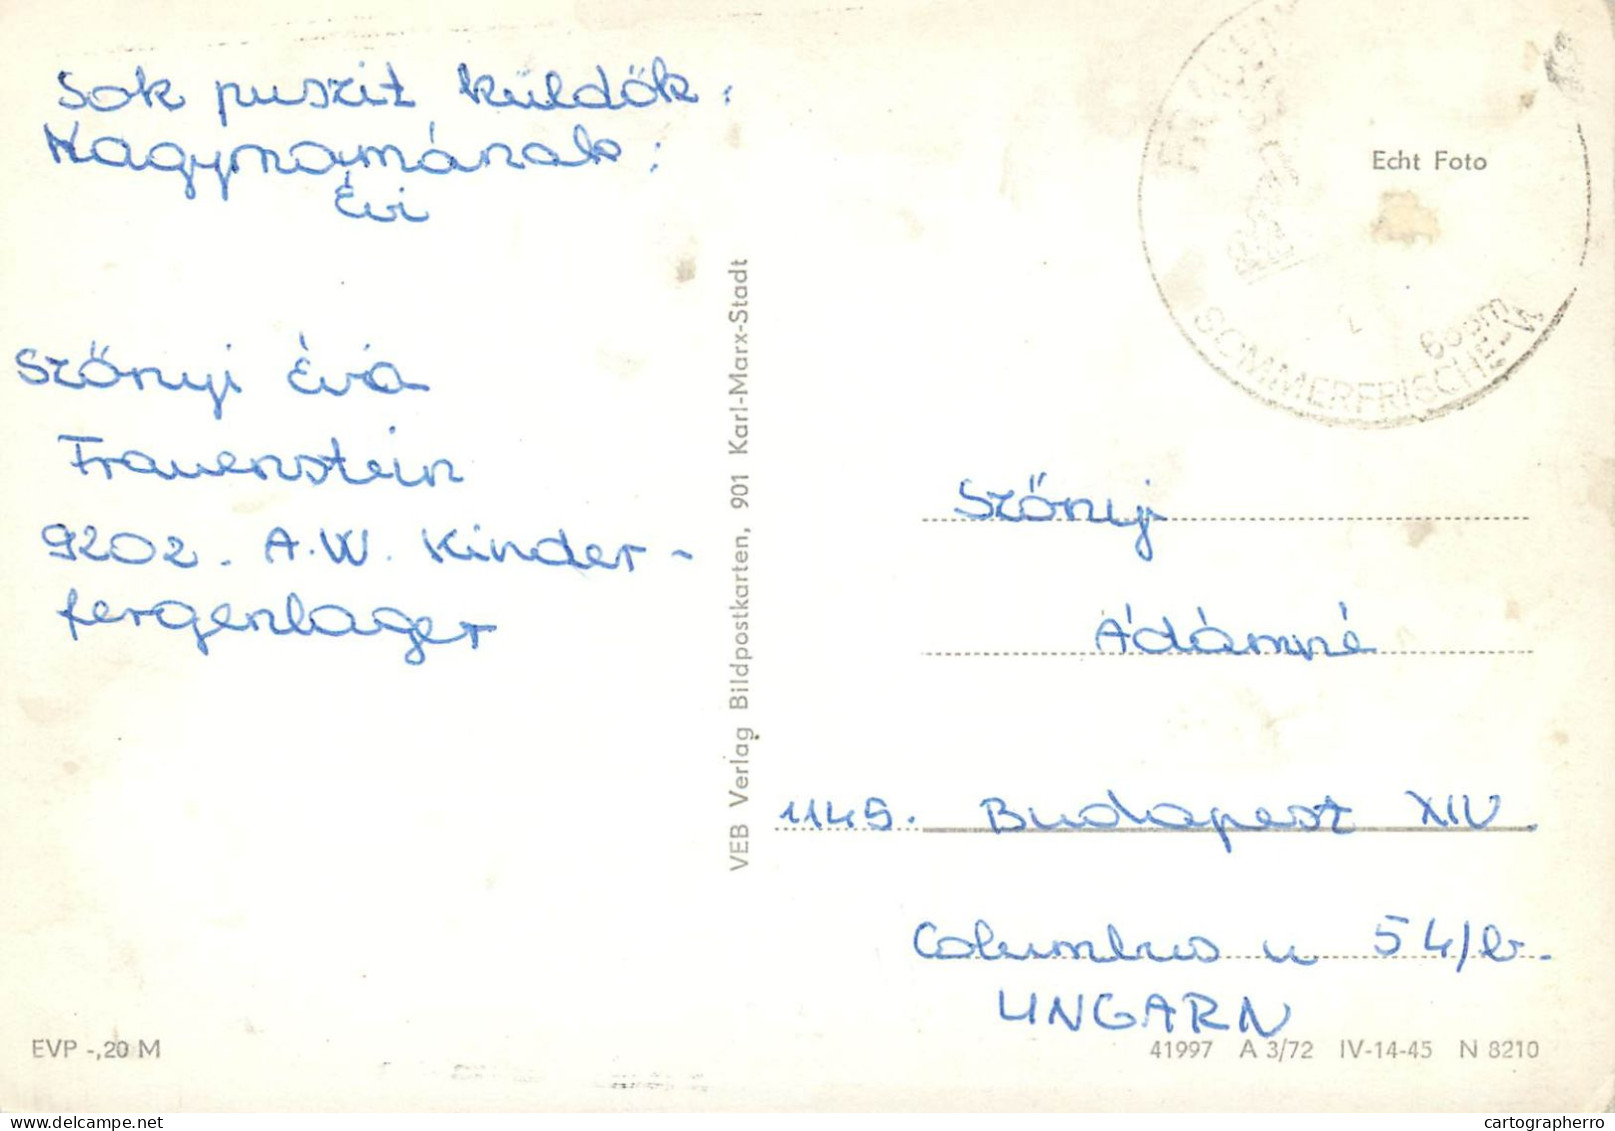 Sok puszit küldök:
Nagymamának:
Évi
Szőnyi Éva
Frauenstein
9202. A.W. Kinder-
fergenlager
VEB Verlag Bildpostkarten, 901 Karl-Marx-Stadt
Echt Foto
SOMMERFRISCHE
Szőnyi
Ádámné
1145. Budapest XIV.
Columbus u 54/b.
UNGARN
EVP -,20 M
41997 A 3/72 IV-14-45 N 8210
cartographerro